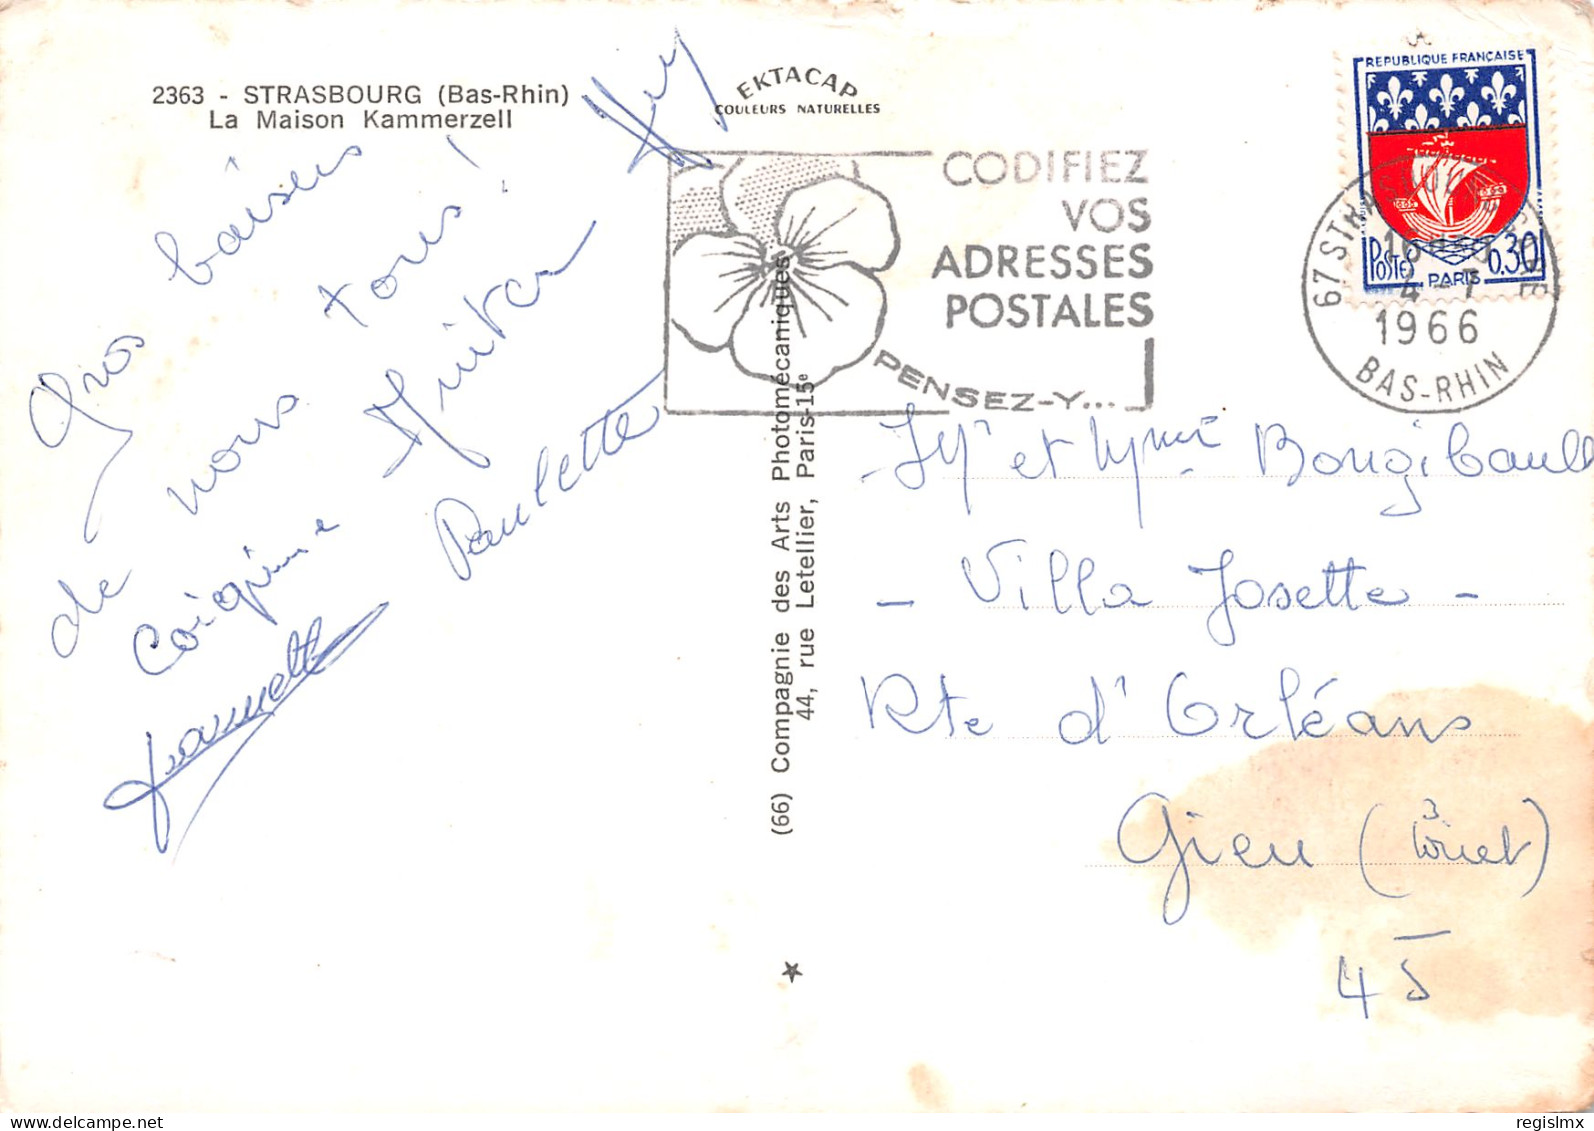 2363 - STRASBOURG (Bas-Rhin)
La Maison Kammerzell
EKTACAP
COULEURS NATURELLES
Gros baisers
de nous tous !
Paulette
CODIFIEZ
VOS
ADRESSES
POSTALES
PENSEZ-Y...
REPUBLIQUE FRANÇAISE
POSTES
PARIS
0.30
67 STRASBOURG
4-7
1966
BAS-RHIN
(66) Compagnie des Arts Photomécaniques
44, rue Letellier, Paris-15e
Mr et Mme Bougibault
- Villa Josette -
Rte d'Orléans
Gien (Loiret)
45
regislmx